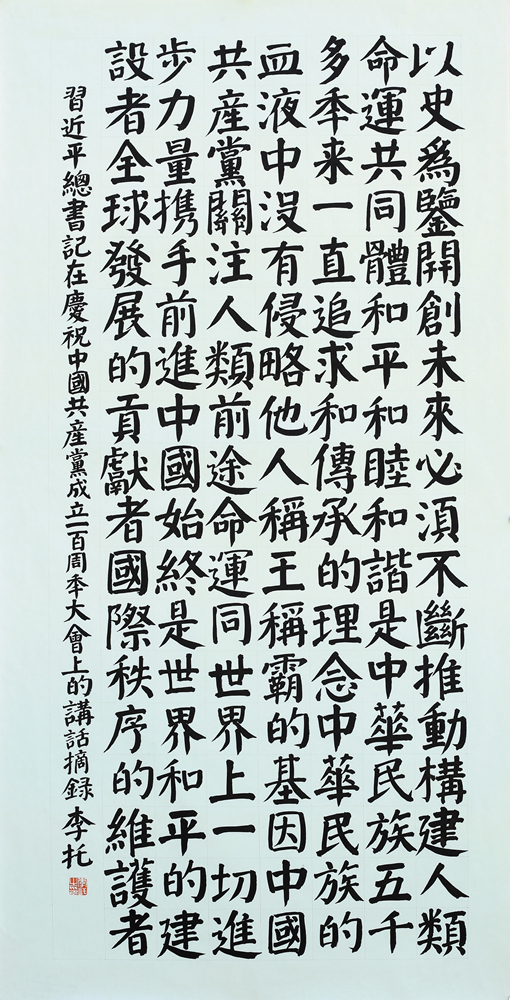 以史爲鑒開創未來必湏不斷推動構建人類
命運共同體和平和睦和諧是中華民族五千
多秊来一直追求和傳承的理念中華民族的
血液中没有侵略他人稱王稱霸的基因中國
共産黨關注人類前途命運同世界上一切進
步力量携手前進中國始終是世界和平的建
設者全球發展的貢獻者國際秩序的維護者
習近平總書記在慶祝中國共産黨成立一百周秊大會上的講話摘録 李托